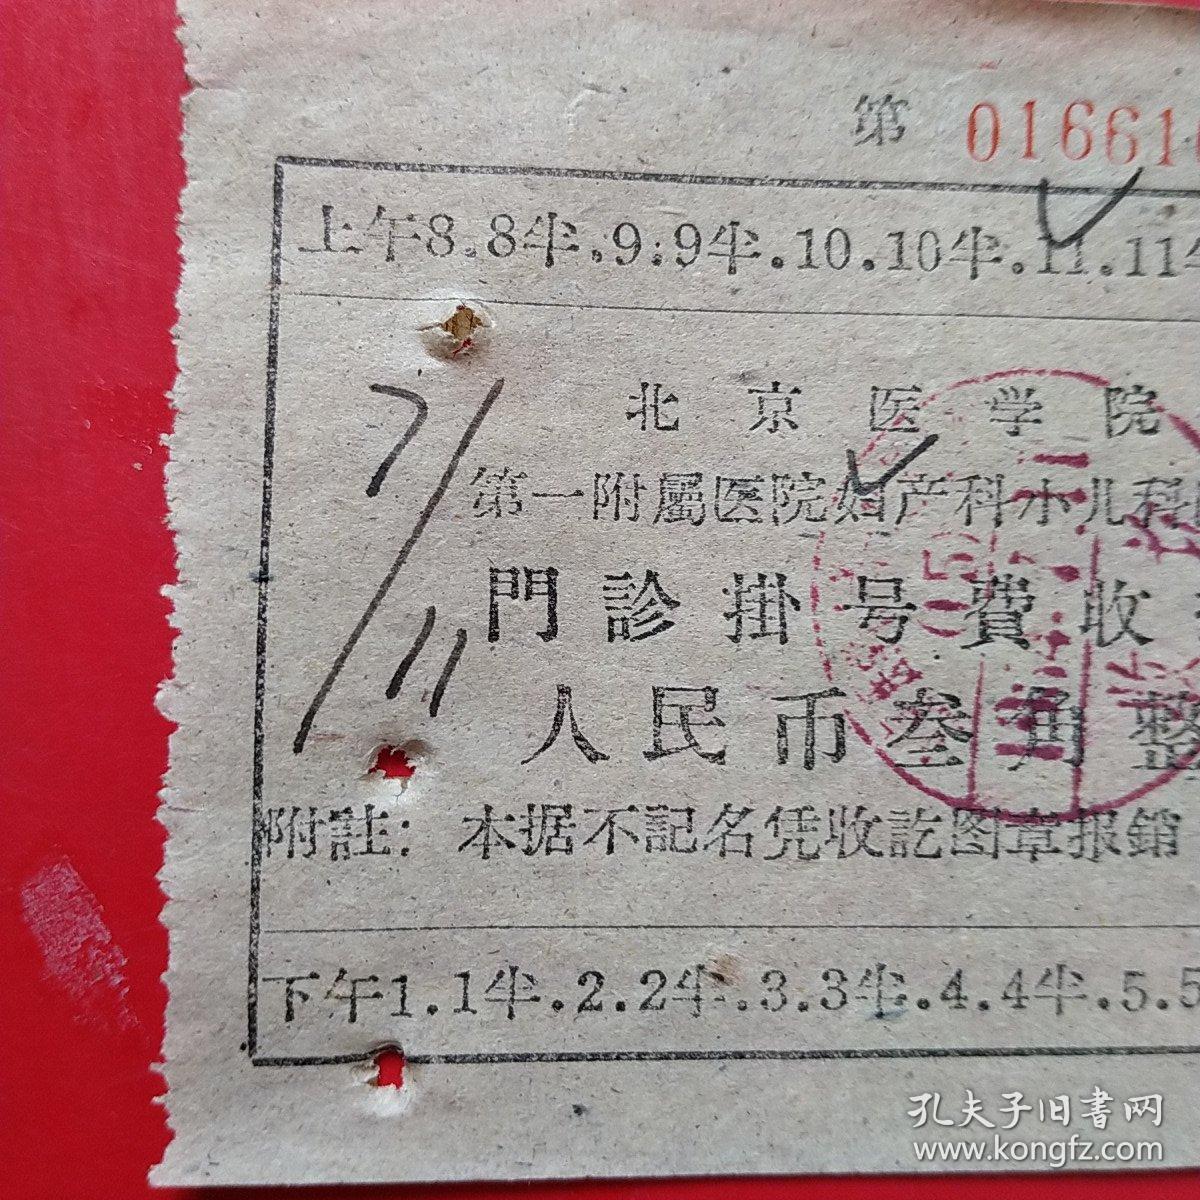 第 01661
上午8.8半.9.9半.10.10半.11.11半
北京医学院
第一附屬医院妇产科小儿科
門診掛号費收
人民币叁角整
附註：本据不記名凭收訖图章报銷
下午1.1半.2.2半.3.3半.4.4半.5.5
7/11
孔夫子旧書网
www.kongfz.com